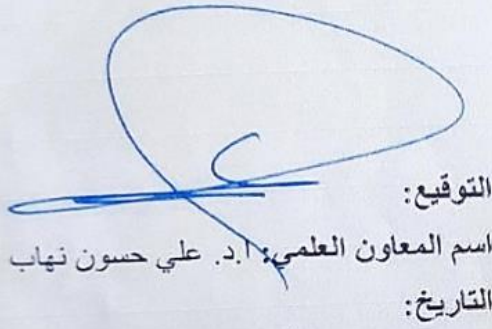 التوقيع:
اسم المعاون العلمي: أ.د. علي حسون نهاب
التاريخ: